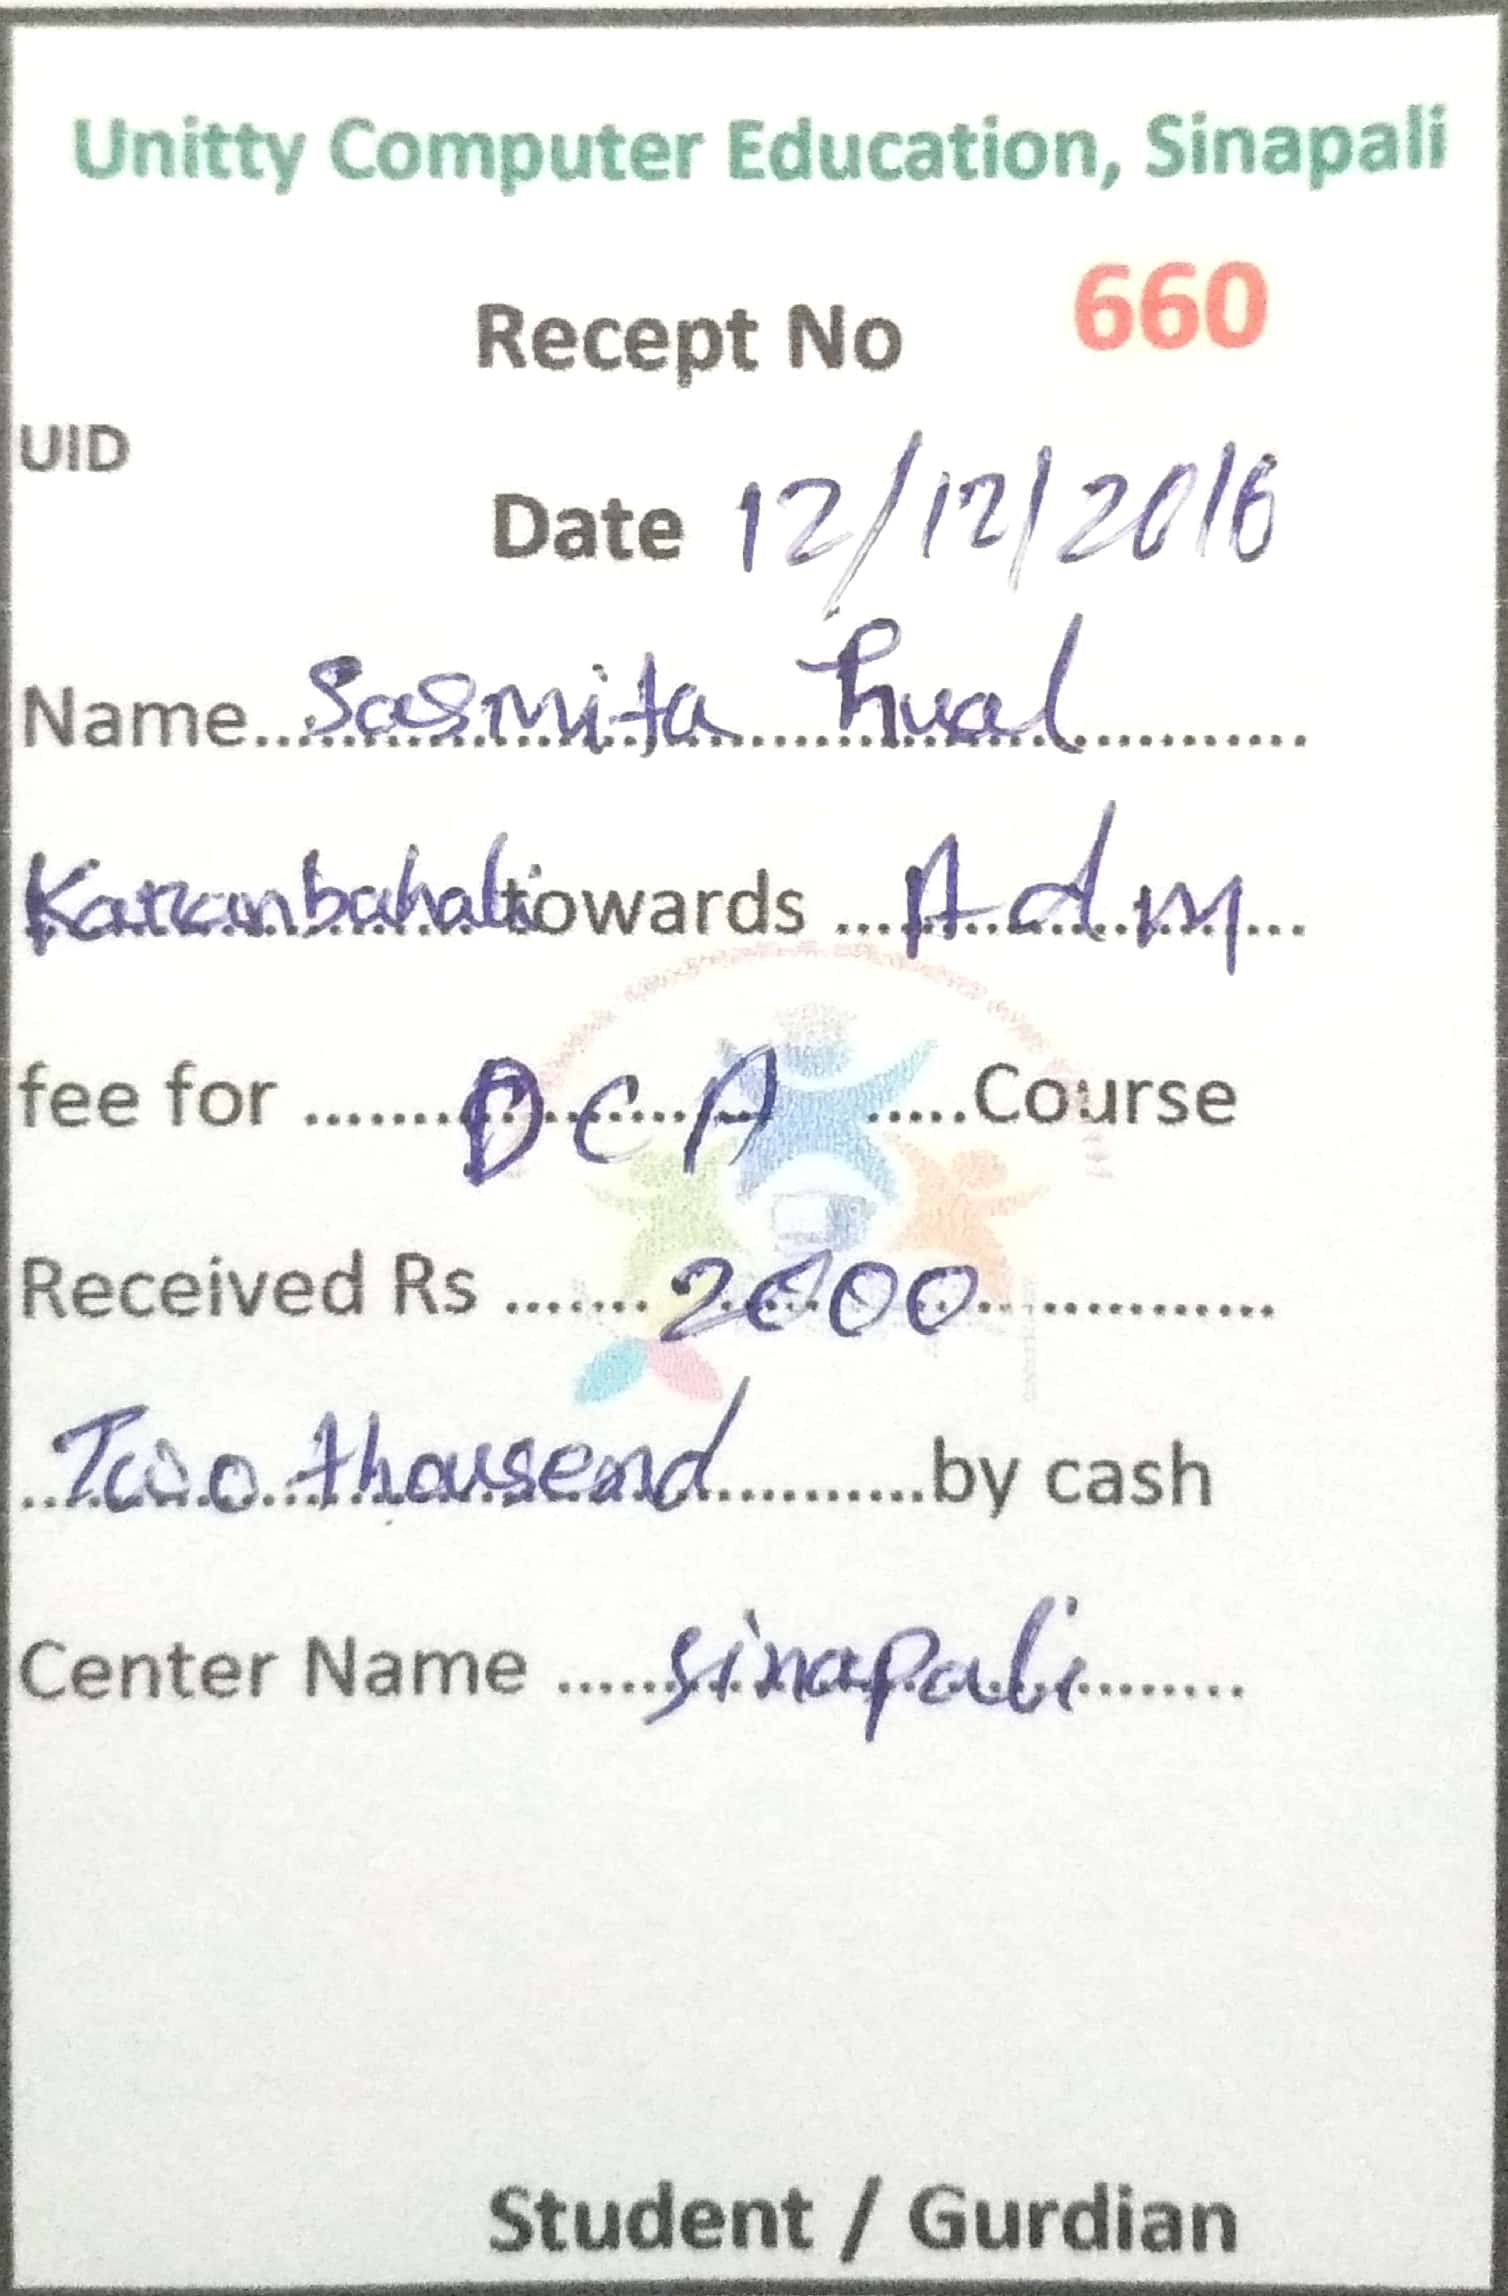 Unitty Computer Education, Sinapali
Recept No 660
UID
Date 12/12/2016
Name...Sasmita hual...
Karanbahali towards ...Adm...
fee for ...DCA...Course
Received Rs ...2000...
...Two thousend...by cash
Center Name ...sinapali...
Student / Gurdian